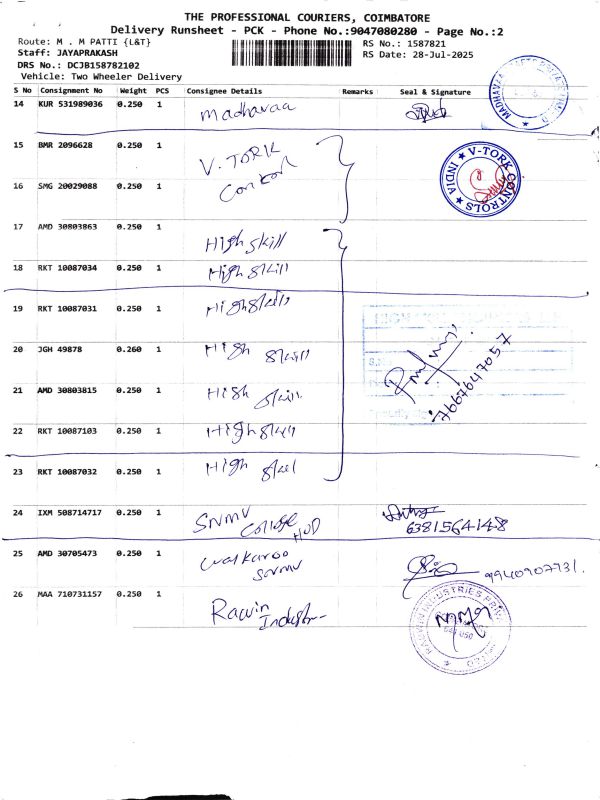 THE PROFESSIONAL COURIERS, COIMBATORE
Delivery Runsheet - PCK - Phone No.:9047080280 - Page No.:2
Route: M . M PATTI {L&T}
Staff: JAYAPRAKASH
DRS No.: DCJB158782102
Vehicle: Two Wheeler Delivery
RS No.: 1587821
RS Date: 28-Jul-2025
S No Consignment No Weight PCS Consignee Details Remarks Seal & Signature
14 KUR 531989036 0.250 1 Madhavaa
15 BMR 2096628 0.250 1 V.TORK
16 SMG 20029088 0.250 1
V-TORK CONTROLS INDIA
17 AMD 30803863 0.250 1 High skill
18 RKT 10087034 0.250 1 High skill
19 RKT 10087031 0.250 1 High skills
20 JGH 49878 0.260 1 High skill
21 AMD 30803815 0.250 1 High skill
7667647057
22 RKT 10087103 0.250 1 High skill
23 RKT 10087032 0.250 1 High skill
24 IXM 508714717 0.250 1 SNMV College HOD
6381564148
25 AMD 30705473 0.250 1 Walkaroo
snmv
9940907931.
26 MAA 710731157 0.250 1 Racwin
INDUSTRIES